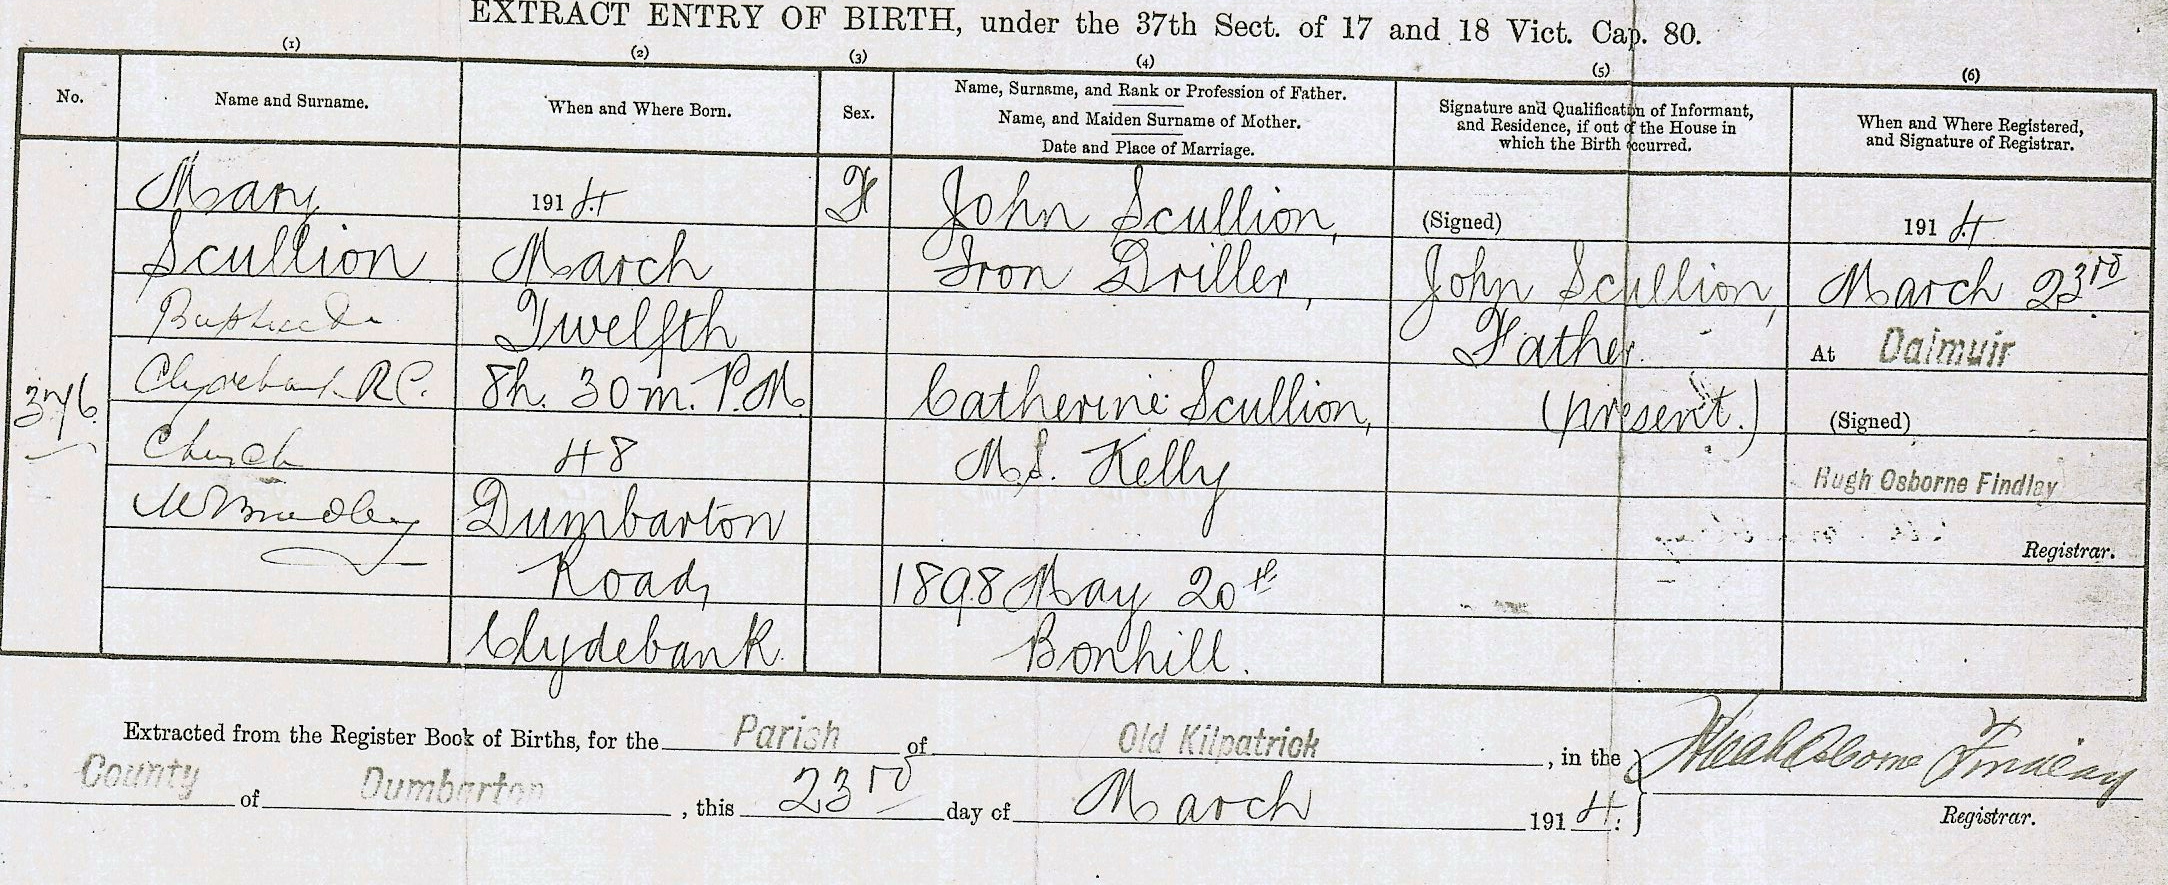 EXTRACT ENTRY OF BIRTH, under the 37th Sect. of 17 and 18 Vict. Cap. 80.
(1) (2) (3) (4) (5) (6)
No.
Name and Surname.
When and Where Born.
Sex.
Name, Surname, and Rank or Profession of Father.
Name, and Maiden Surname of Mother.
Date and Place of Marriage.
Signature and Qualification of Informant,
and Residence, if out of the House in
which the Birth occurred.
When and Where Registered,
and Signature of Registrar.
Mary
Scullion
Clydebank R.C.
Church
1914
March
Twelfth
8h. 30m. P.M.
48
Dumbarton
Road,
Clydebank.
F
John Scullion,
Iron Driller,
Catherine Scullion,
M.S. Kelly
1898 May 20th
Bonhill.
(Signed)
John Scullion,
Father.
(present.)
1914
March 23rd
At Dalmuir
(Signed)
Hugh Osborne Findlay
Registrar.
Extracted from the Register Book of Births, for the Parish of Old Kilpatrick, in the
County of Dumbarton, this 23rd day of March 1914.
Hugh Osborne Findlay
Registrar.